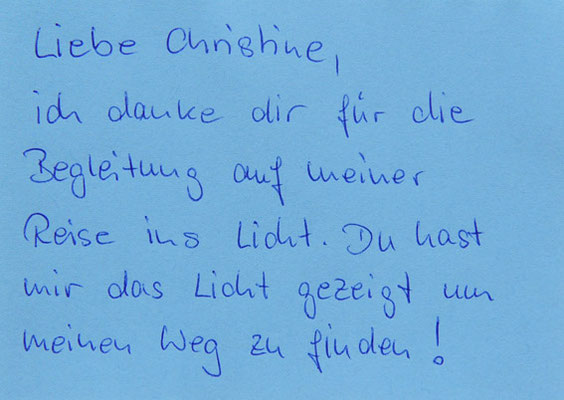 Liebe Christine,
ich danke dir für die
Begleitung auf meiner
Reise ins Licht. Du hast
mir das Licht gezeigt um
meinen Weg zu finden!